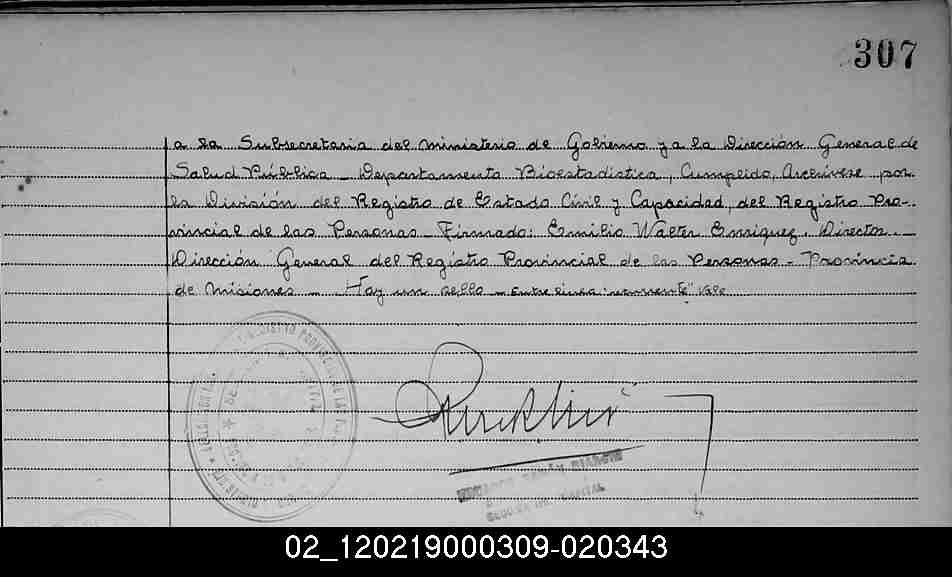 307
a la Subsecretaria del Ministerio de Gobierno y a la Dirección General de
Salud Pública - Departamento Bioestadística, Cumplido, Archívese por
la División del Registro de Estado Civil y Capacidad, del Registro Pro-
vincial de las Personas - Firmado: Emilio Walter Enriquez. Director. -
Dirección General del Registro Provincial de las Personas - Provincia
de Misiones - Hay un sello - Entre línea: "Vale
02_120219000309-020343